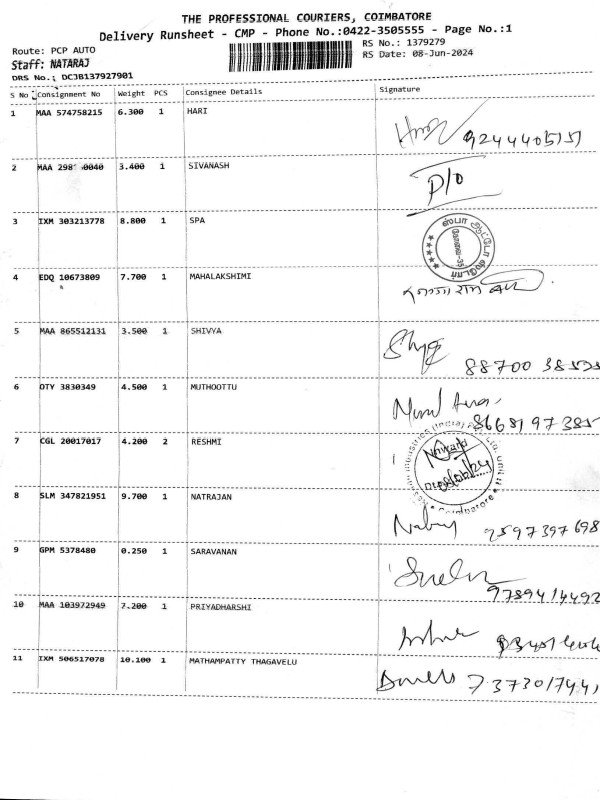 THE PROFESSIONAL COURIERS, COIMBATORE
Delivery Runsheet - CMP - Phone No.:0422-3505555 - Page No.:1
Route: PCP AUTO
RS No.: 1379279
Staff: NATARAJ
RS Date: 08-Jun-2024
DRS No.: DCJB137927901
S No Consignment No Weight PCS Consignee Details Signature
1 MAA 574758215 6.300 1 HARI 9244405151
2 MAA 298 0040 3.400 1 SIVANASH P/0
3 IXM 303213778 8.800 1 SPA
ஸ்பா ஆட்டோ ஸ்டோர்
4 EDQ 10673809 7.700 1 MAHALAKSHIMI
5 MAA 865512131 3.500 1 SHIVYA 88700
6 OTY 3830349 4.500 1 MUTHOOTTU
7 CGL 20017017 4.200 2 RESHMI
Coimbatore
8 SLM 347821951 9.700 1 NATRAJAN 9597397698
9 GPM 5378480 0.250 1 SARAVANAN 9789414492
10 MAA 103972949 7.200 1 PRIYADHARSHI
11 IXM 506517078 10.100 1 MATHAMPATTY THAGAVELU 7373017441